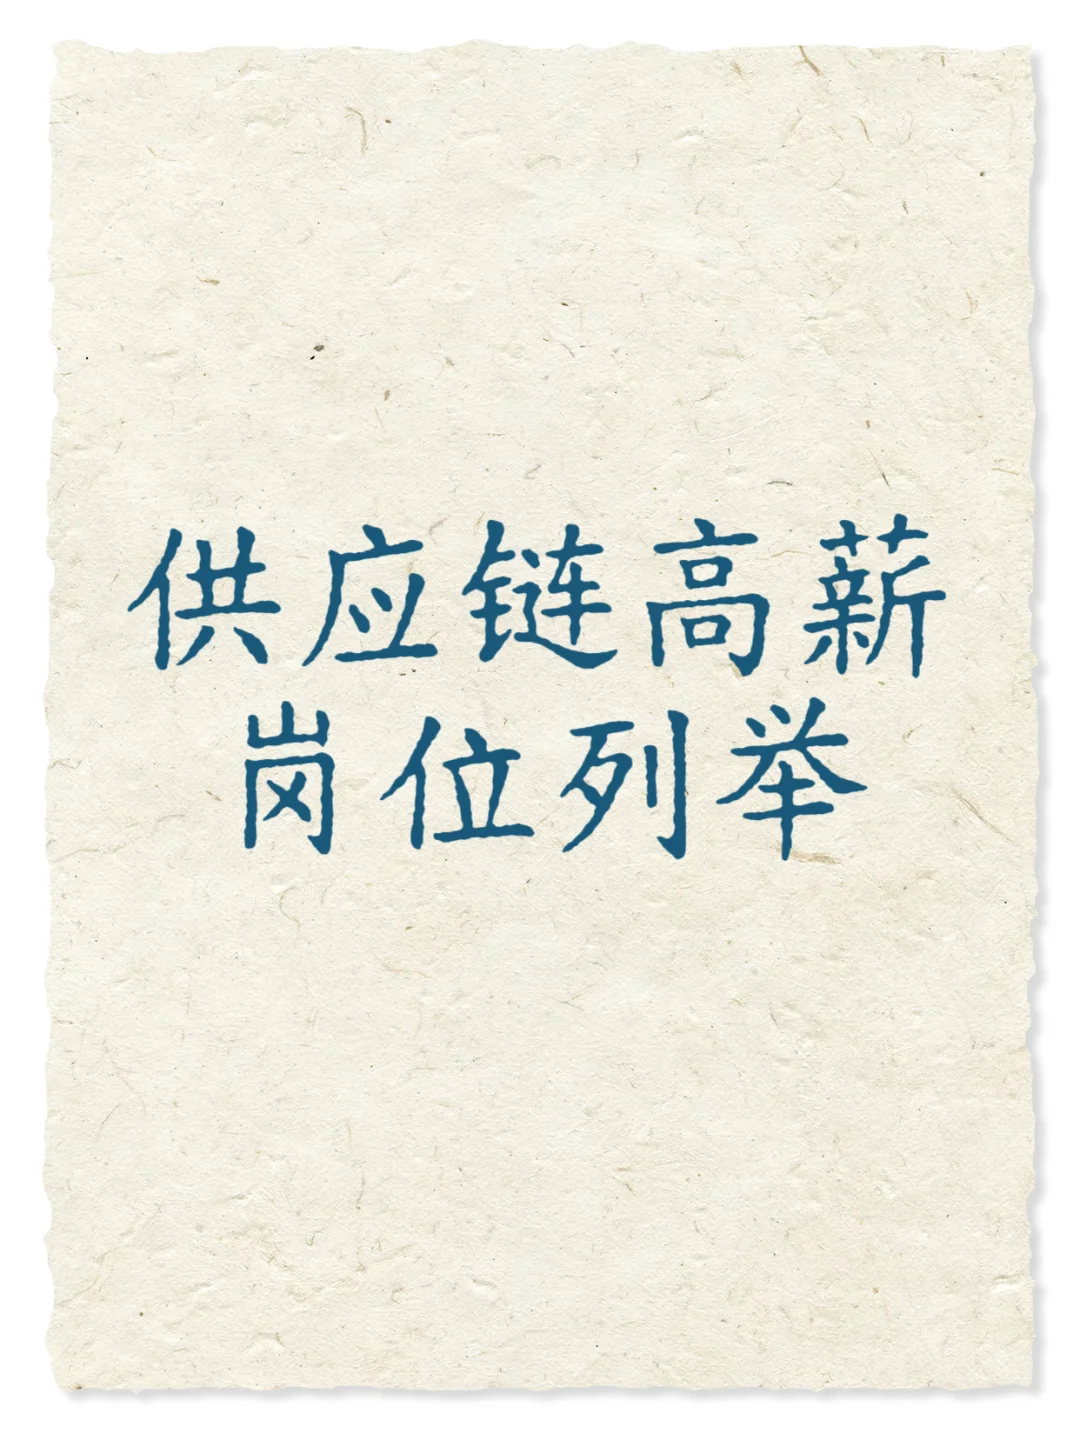 供应链高薪
岗位列举